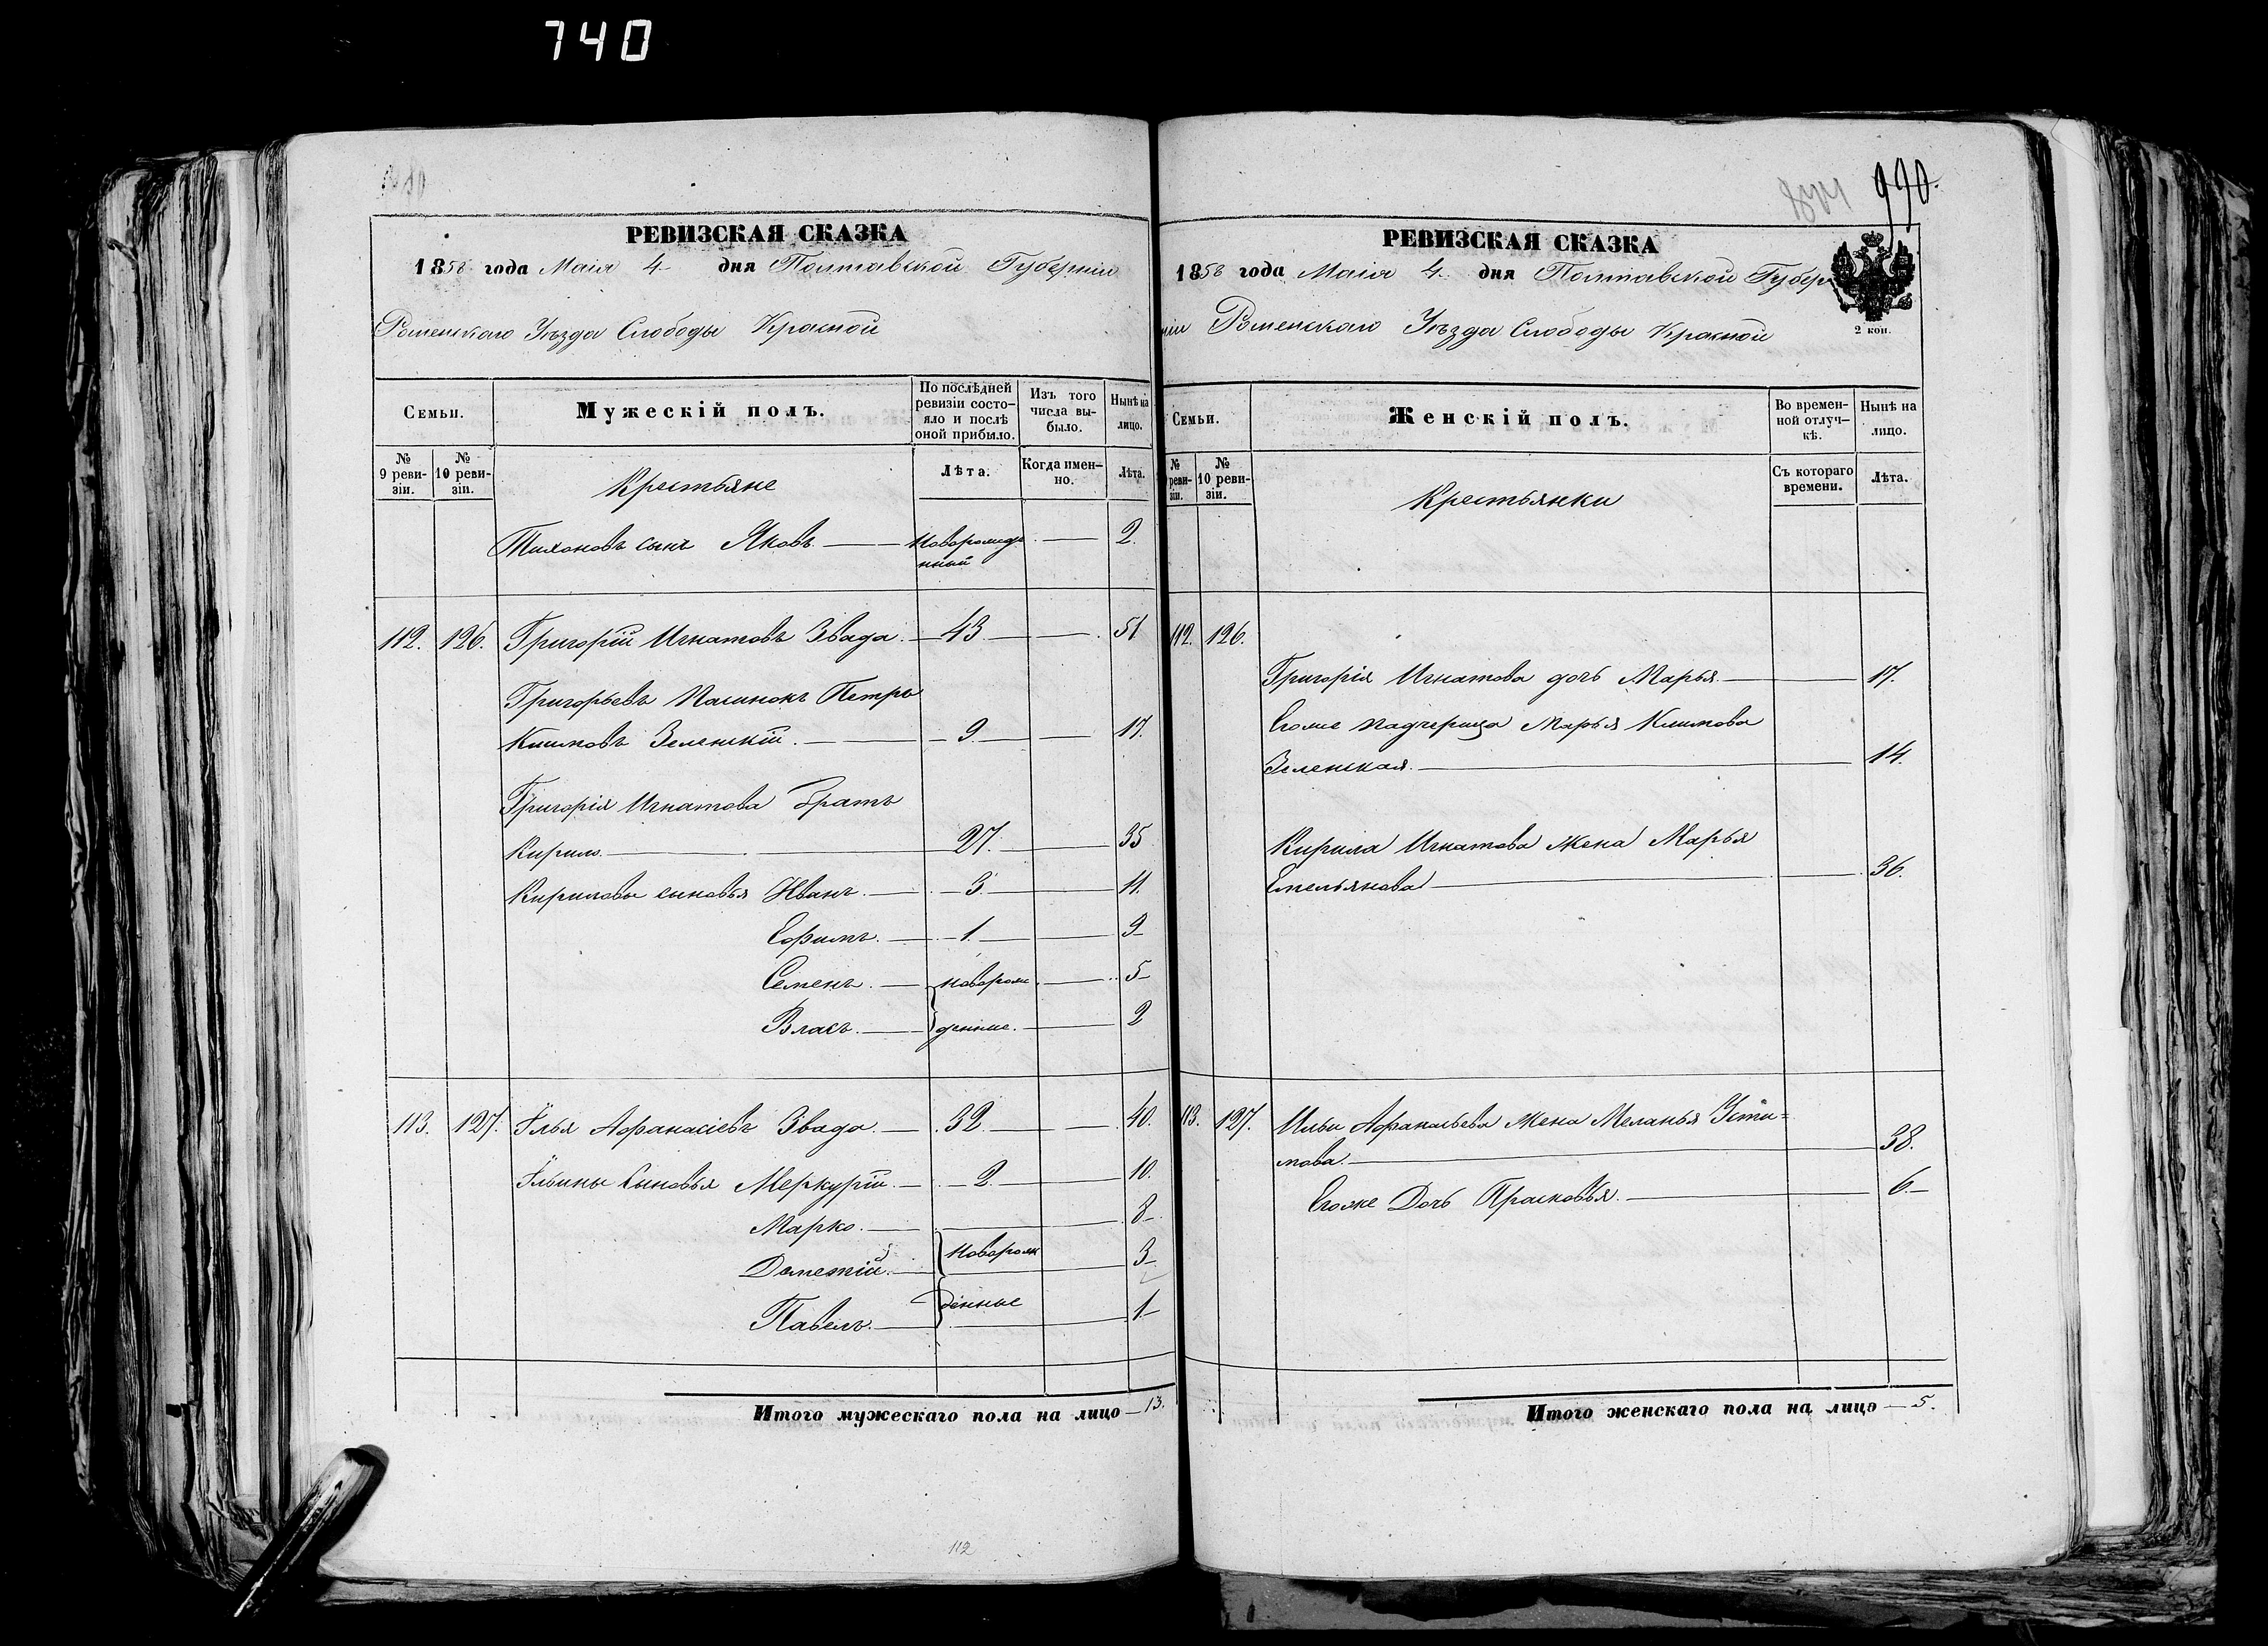 740
РЕВИЗСКАЯ СКАЗКА
1858 года Маія 4 дня Полтавской Губерніи
Роменскаго Уѣзда Слободы Красной
Семьи.
Мужескій полъ.
По послѣдней ревизіи состояло и послѣ оной прибыло.
Изъ того числа выбыло.
Нынѣ на лицо.
№ 9 ревизіи.
№ 10 ревизіи.
Крестьяне
Лѣта.
Когда именно.
Лѣта.
Тихоновъ сынъ Яковъ. — новорожденный — 2.
112. 126. Григорій Игнатовъ Звада. — 43. — 51
Григорьевъ Пасинокъ Петръ
Климовъ Зеленскій. — 9. — 17.
Григорія Игнатова Братъ
Кирило. — 27. — 35
Кириловы сыновья Иванъ. — 3. — 11.
Ефимъ. — 1. — 9
Семенъ. — новорож — 5
Власъ. — денные. — 2
113. 127. Илья Афанасіевъ Звада. — 32. — 40.
Ильины Сыновья Меркурій. — 2. — 10.
Марко. — 8
Дометій. — новорож — 3
Павелъ. — денные — 1
Итого мужескаго пола на лицо — 13.
112
990.
РЕВИЗСКАЯ СКАЗКА
1858 года Маія 4. дня Полтавской Губер
ніи Роменскаго Уѣзда Слободы Красной
2 коп.
Семьи.
Женскій полъ.
Во временной отлучкѣ.
Нынѣ на лицо.
№ реви-зіи.
№ 10 реви-зіи.
Крестьянки
Съ котораго времени.
Лѣта.
112. 126.
Григорія Игнатова дочь Марья — 17.
Егоже падчерица Марья Климова
Зеленская. — 14.
Кирила Игнатова жена Марья
Емельянова — 36.
113. 127. Ильи Афанасьева Жена Меланья Усти=
мова. — 38.
Егоже Дочь Прасковья. — 6.
Итого женскаго пола на лицо — 5.